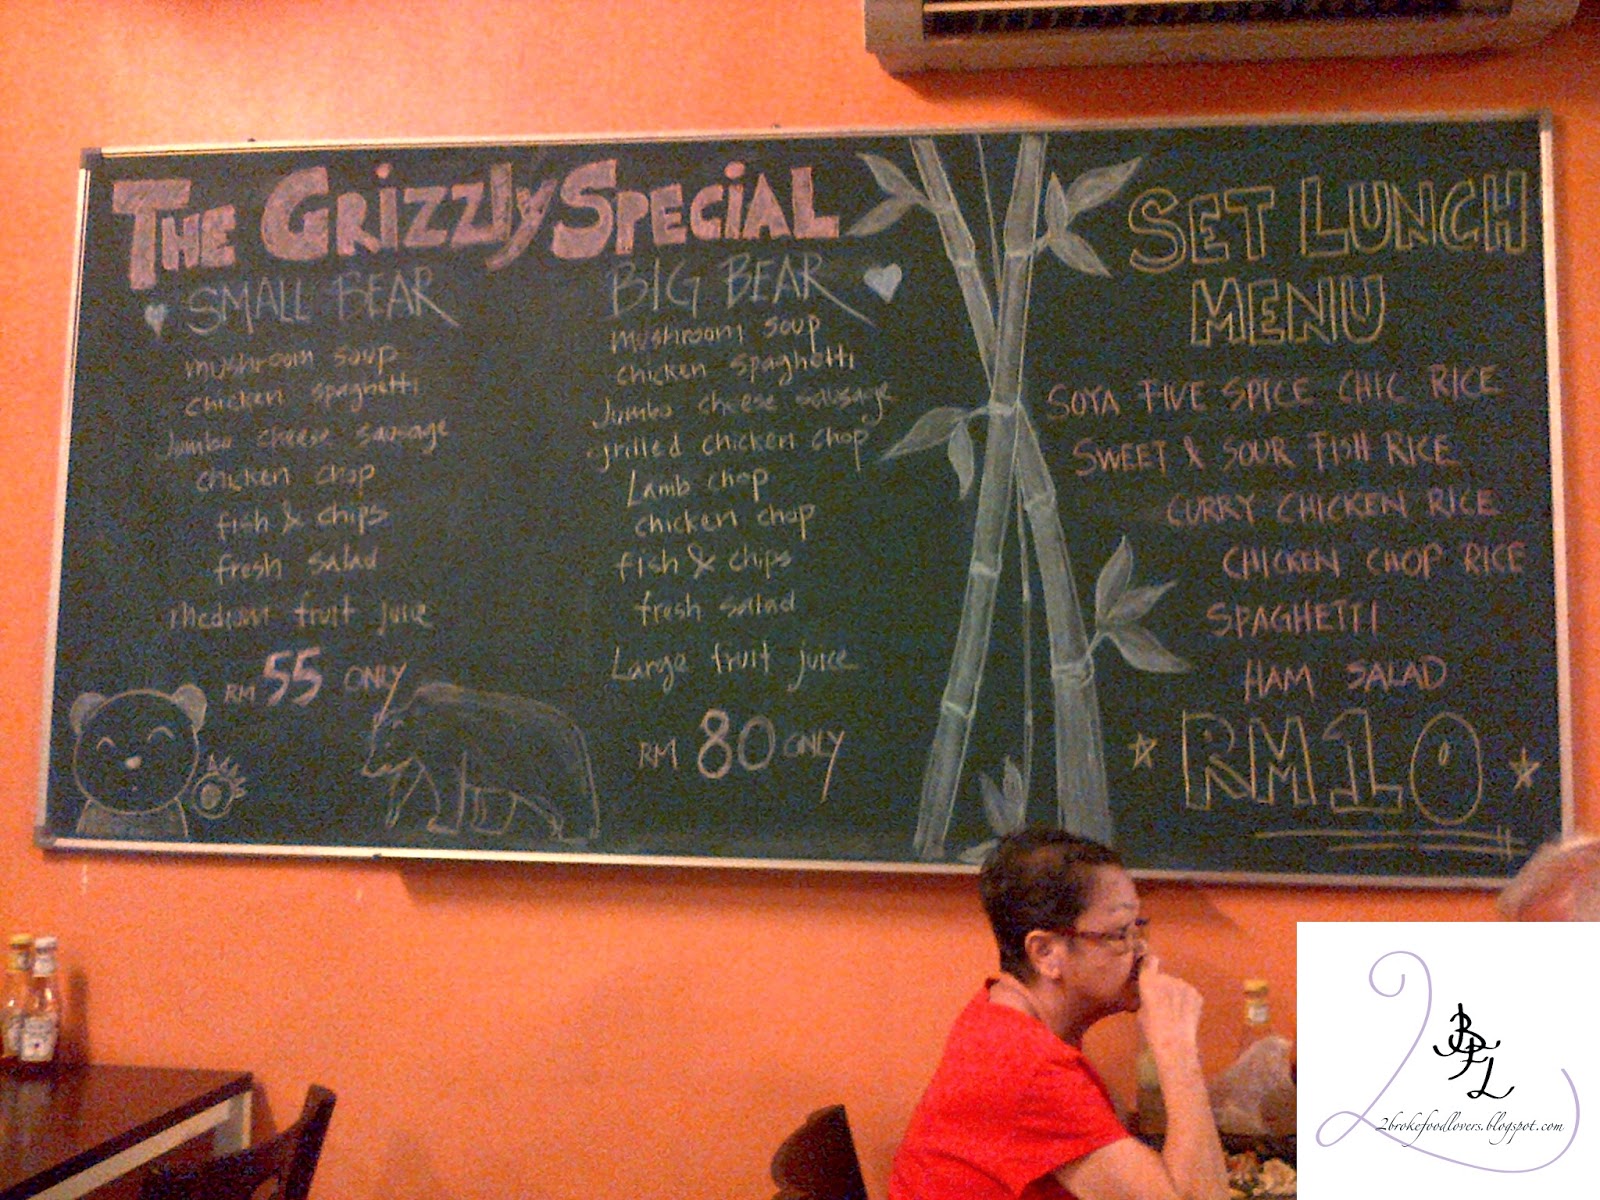 THE GRIZZLY SPECIAL
SMALL BEAR
mushroom soup
chicken spaghetti
Jumbo cheese sausage
chicken chop
fish & chips
fresh salad
medium fruit juice
RM 55 ONLY
BIG BEAR
mushroom soup
chicken spaghetti
Jumbo cheese sausage
grilled chicken chop
Lamb chop
chicken chop
fish & chips
fresh salad
Large fruit juice
RM 80 ONLY
SET LUNCH
MENU
SOYA FIVE SPICE CHIC RICE
SWEET & SOUR FISH RICE
CURRY CHICKEN RICE
CHICKEN CHOP RICE
SPAGHETTI
HAM SALAD
RM10
2BFL
2brokefoodlovers.blogspot.com